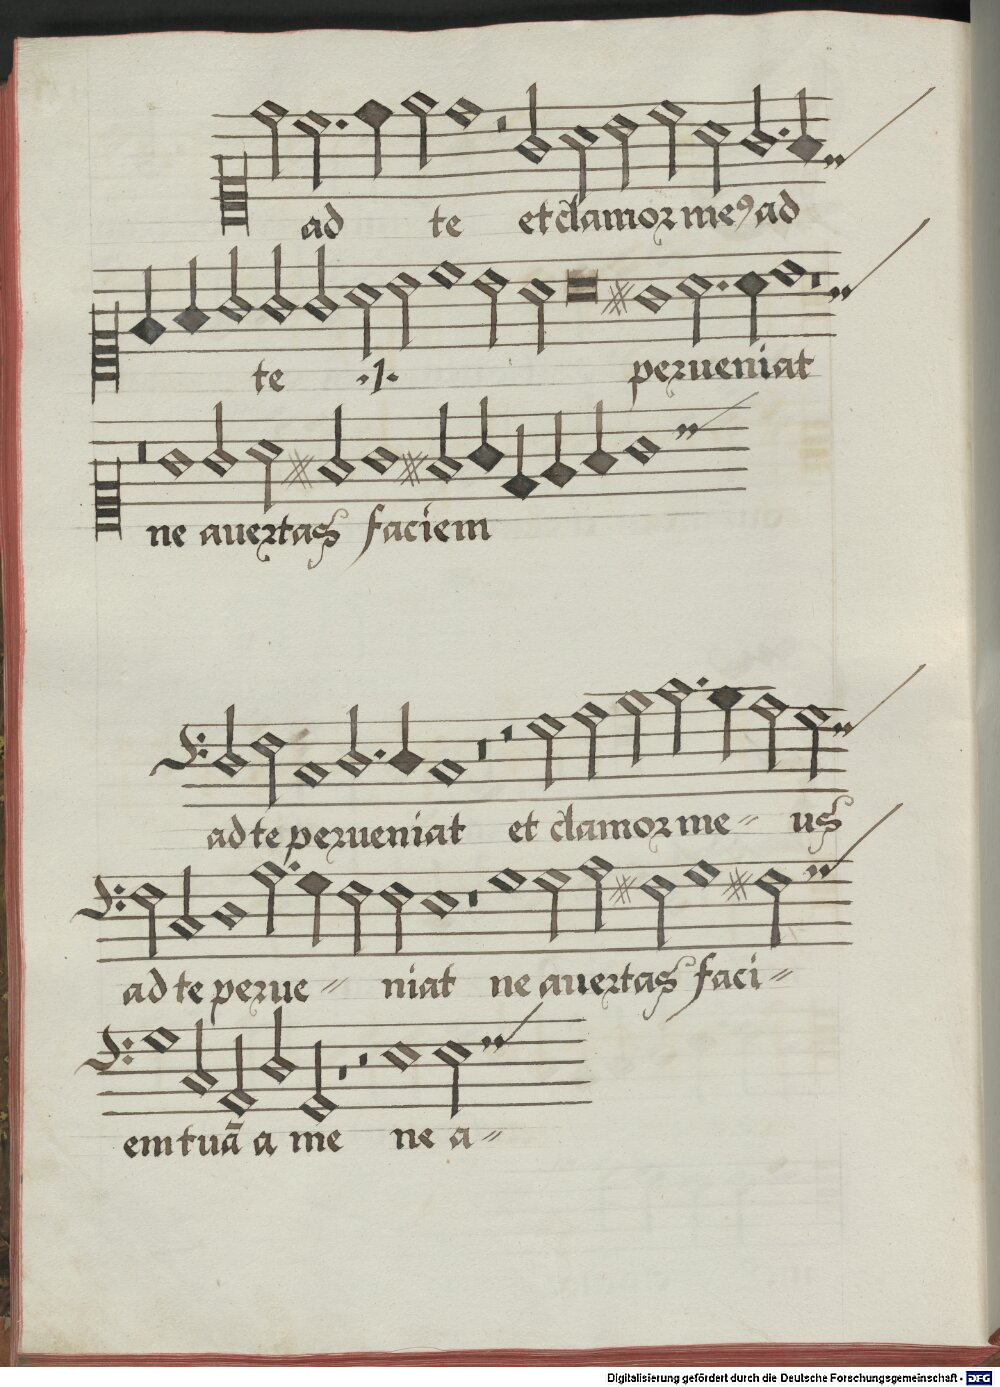 ad te et clamor me⁹ ad
te .1. perueniat
ne auertas faciem
ad te perueniat et clamor me= us
ad te perue= niat ne auertas faci=
em tuā a me ne a=
Digitalisierung gefördert durch die Deutsche Forschungsgemeinschaft - DFG